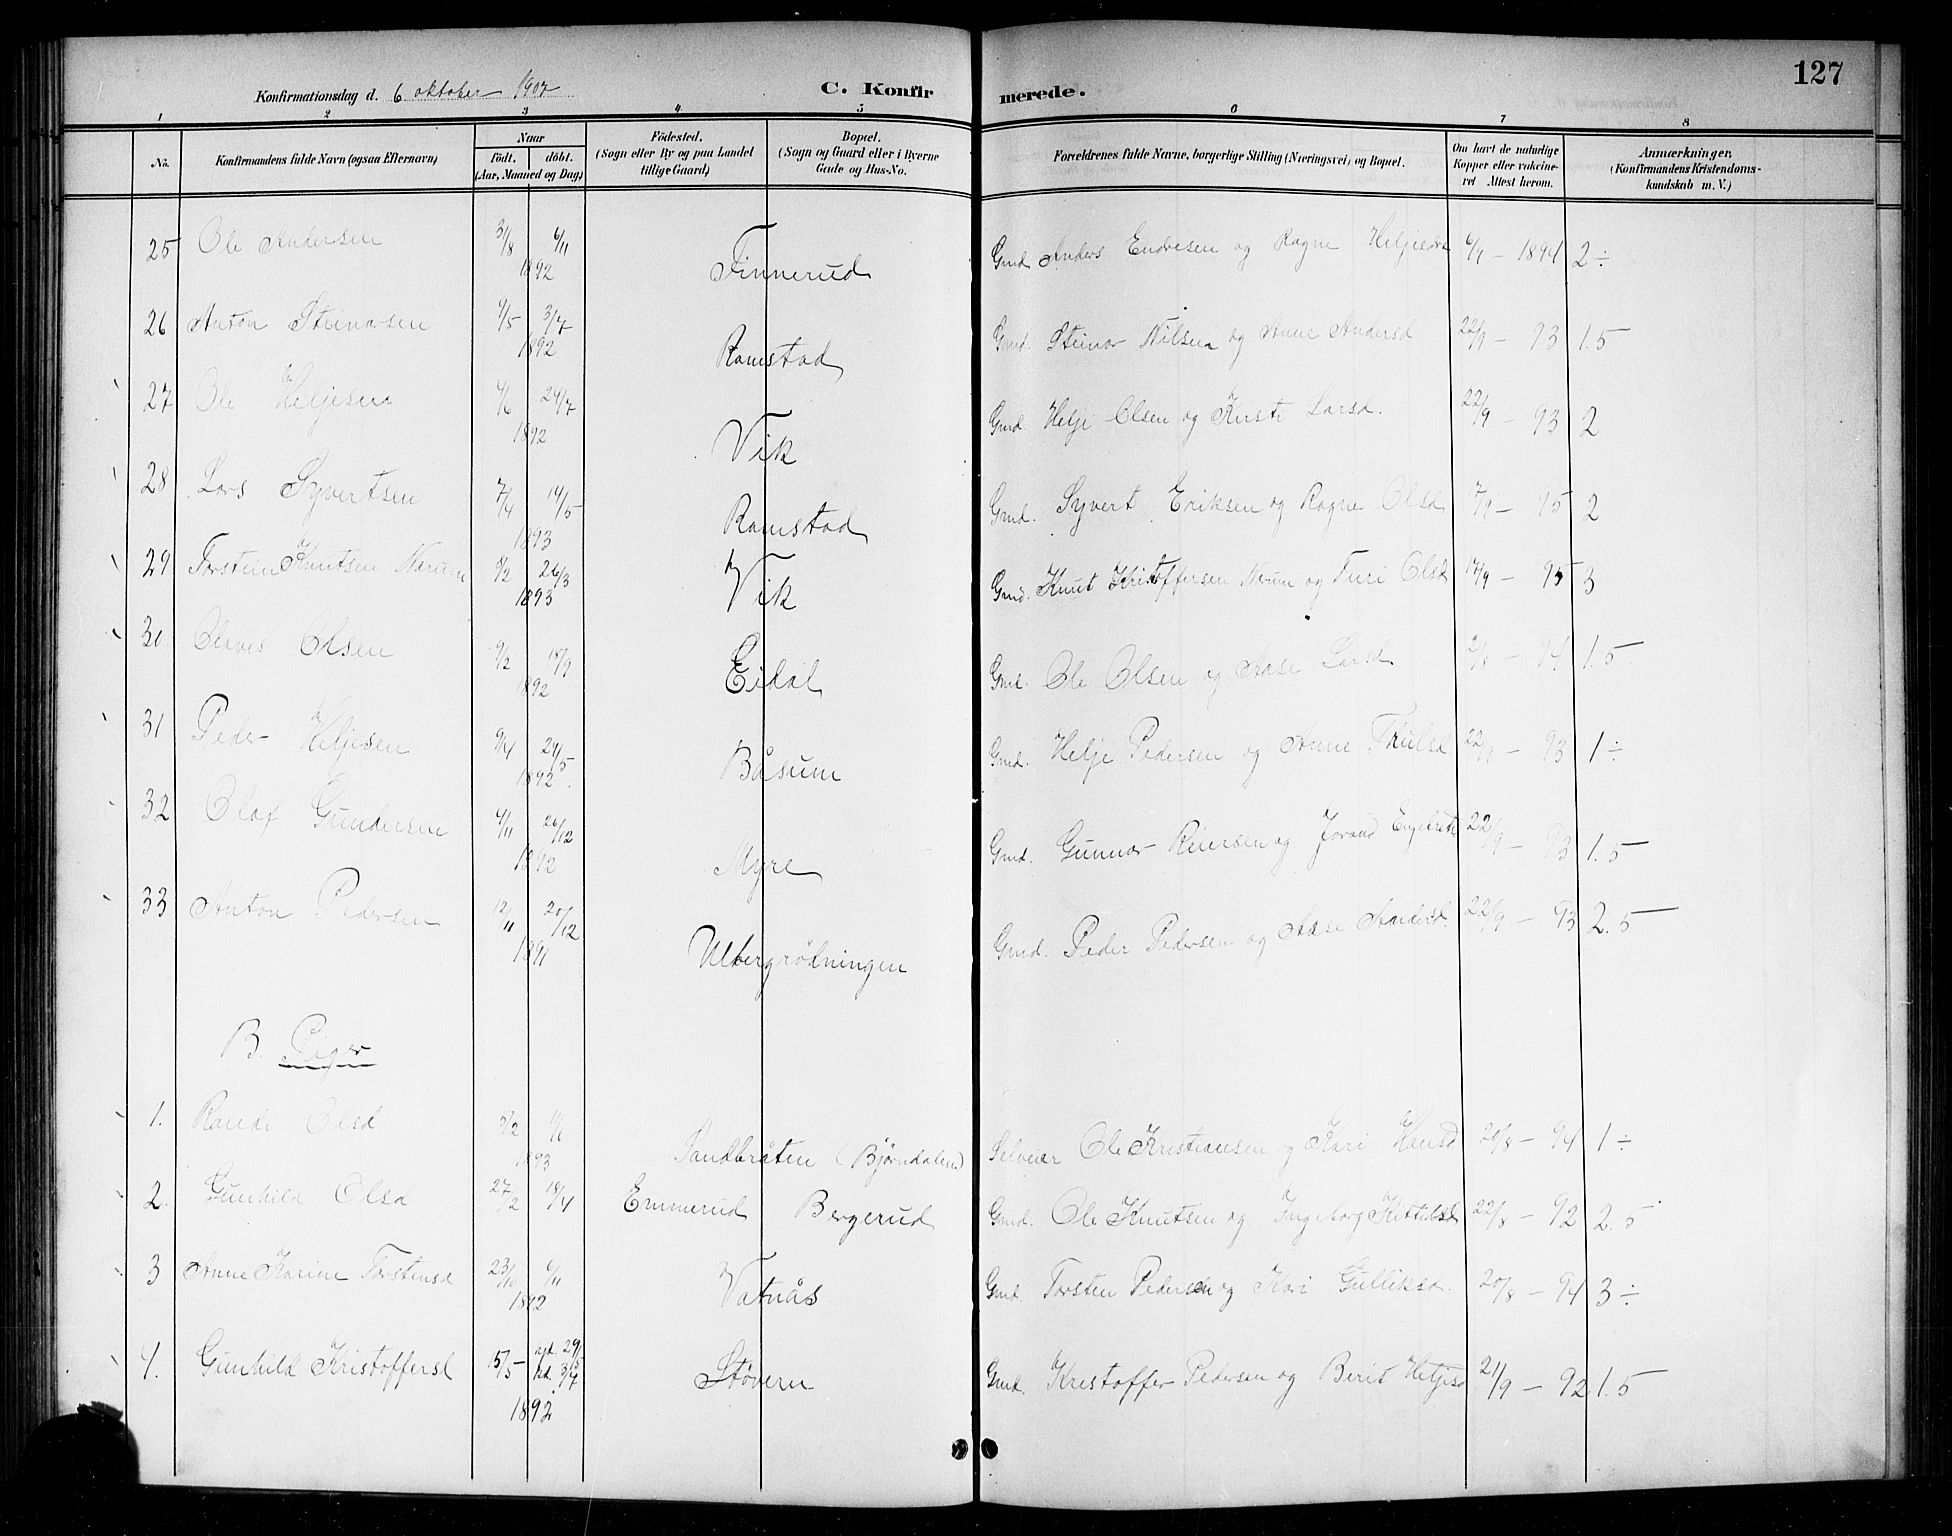 127
Konfirmationsdag d. 6 oktober 1907 C. Konfirmerede.
1 2 3 4 5 6 7 8
No. Konfirmandens fulde Navn (ogsaa Efternavn) Naar födt. döbt. (Aar, Maaned og Dag) Födested. (Sogn eller By og paa Landet tillige Gaard) Bopæl. (Sogn og Gaard eller i Byerne Gade og Hus-No. Forældrenes fulde Navne, borgerlige Stilling (Næringsvei) og Bopæl. Om havt de naturlige Kopper eller vakcineret Attest herom. Anmærkninger, (Konfirmandens Kristendomskundskab m. V.)
25 Ole Andersen 3/8 6/11 1892 Finnerud Gmd Anders Endresen og Ragne Heljesd 6/9 - 1894 2÷
26 Anton Steinarsen 3/7 1892 Ramstad Gmd. Steinar Nilsen og Anne Andersd 22/9 - 93 1.5
27 Ole Heljesen 24/7 1892 Vik Gmd. Helje Olsen og Kirsti Larsd. 22/9 - 93 2
28 Lars Syvertsen 7/4 14/5 1893 Ramstad Gmd. Syvert Eriksen og Ragne Olsd 95 2
29 Torstein Knutsen Narum 26/3 1893 Vik Gmd. Knut Kristoffersen Narum og Turi Olsd 17/9 - 95 3
30 Olsen 1892 Eidal Gmd. Ole Olsen og Aase Larsd 2/8 - 94 1.5
31 Peder Heljesen 9/4 29/5 1892 Båsum Gmd. Helje Pedersen og Anne 22/9 - 93 1÷
32 Olaf Gundersen 26/12 1892 Myre Gmd. Gunnar Reiersen og Jorand 22/9 - 93 1.5
33 Anton Pedersen 12/11 20/12 1891 Ulbergrödningen Gmd. Peder Pedersen og Aase Andersd. 22/9 - 93 2.5
B. Piger
1. Randi Olsd 5/2 1893 Sandbråten (Bjørndalen) Selveier Ole Kristiansen og Kari Hansd 20/8 - 94 1÷
2. Gunhild Olsd 27/2 18/4 Emmerud Bergerud Gmd. Ole Knutsen og Ingeborg Kittelsd 22/8 - 92 2.5
3 Anne Karine Torstensd 23/10 6/11 1892 Vatnås Gmd. Torsten Pedersen og Kari Gulliksd. 20/8 - 94 3÷
4. Gunhild Kristoffersd 15/5 - 29/5 3/7 1892 Støvern Gmd. Kristoffer Pedersen og Berit Heljesd 21/9 - 92 1.5